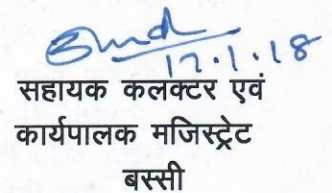 17.1.18
सहायक कलक्टर एवं
कार्यपालक मजिस्ट्रेट
बस्सी